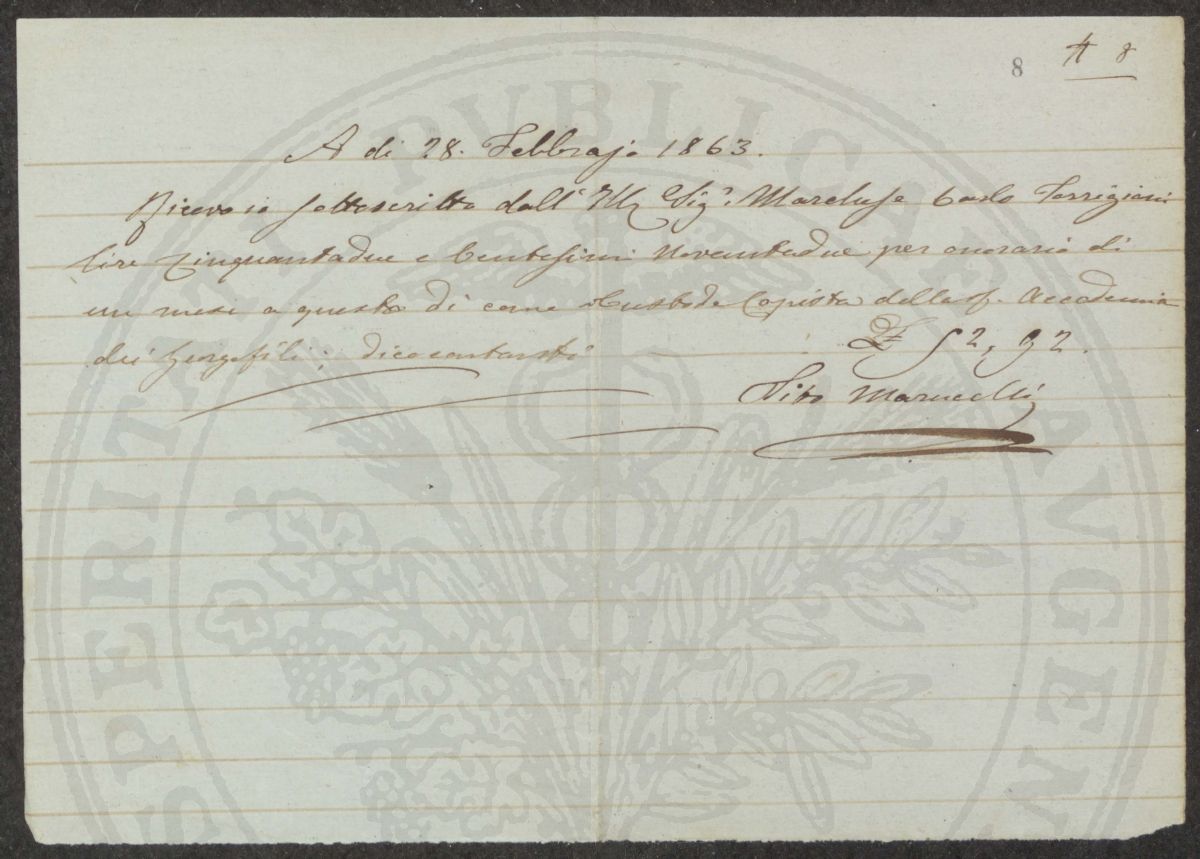 8 # 8
A di 28. Febbrajo 1863.
Ricevo io sottoscritto dall' Ill Sig.r Marchese Carlo Torrigiani
lire Cinquantadue e Centesimi Novantadue per onorario di
un mese a questo dì come Custode Copista della Accademia
dei Georgofili; dico contanti
£ 52,92.
Tito Marucelli
PROSPERITATI PUBLICAE AUGEN